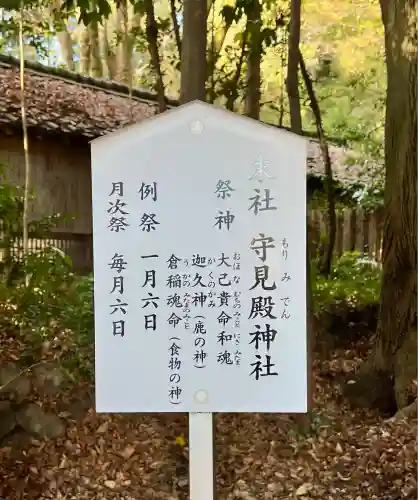 末社 守見殿神社
もり み でん
祭神 大己貴命和魂
おほなむちのみことにきみたま
迦久神（鹿の神）
かくのかみ
倉稲魂命（食物の神）
うかのみたまのみこと
例祭 一月六日
月次祭 毎月六日